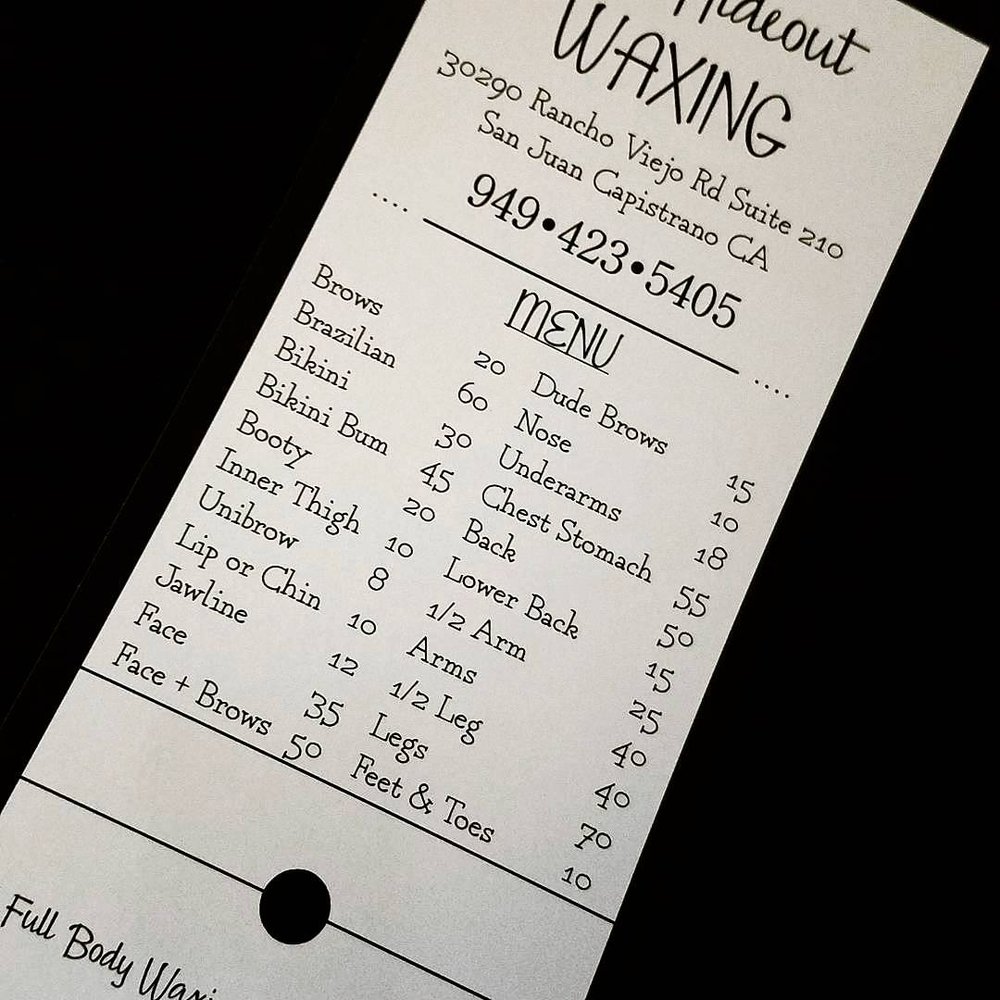 Hideout
WAXING
30290 Rancho Viejo Rd Suite 210
San Juan Capistrano CA
949•423•5405
MENU
Brows 20
Brazilian 60
Bikini 30
Bikini Bum 45
Booty 20
Inner Thigh 10
Unibrow 8
Lip or Chin 10
Jawline 12
Face 35
Face + Brows 50
Dude Brows 15
Nose 10
Underarms 18
Chest Stomach 55
Back 50
Lower Back 15
1/2 Arm 25
Arms 40
1/2 Leg 40
Legs 70
Feet & Toes 10
Full Body